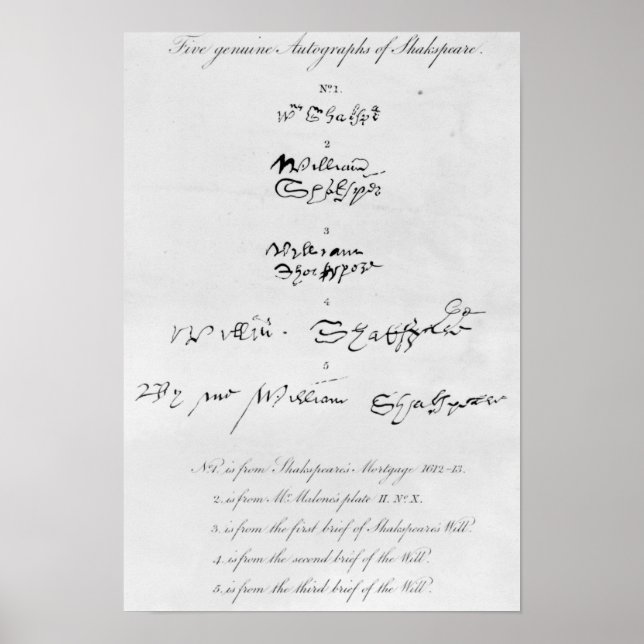 Five genuine Autographs of Shakspeare.
No. 1.
Wm Shakspe
2
William
Shakspe
3
William
Shakspere
4
Willm. Shakspere
5
By me William Shakspere
No. 1. is from Shakspeare's Mortgage 1612-13.
2. is from Mr. Malone's plate II. No. X.
3. is from the first brief of Shakspeare's Will.
4. is from the second brief of the Will.
5. is from the third brief of the Will.